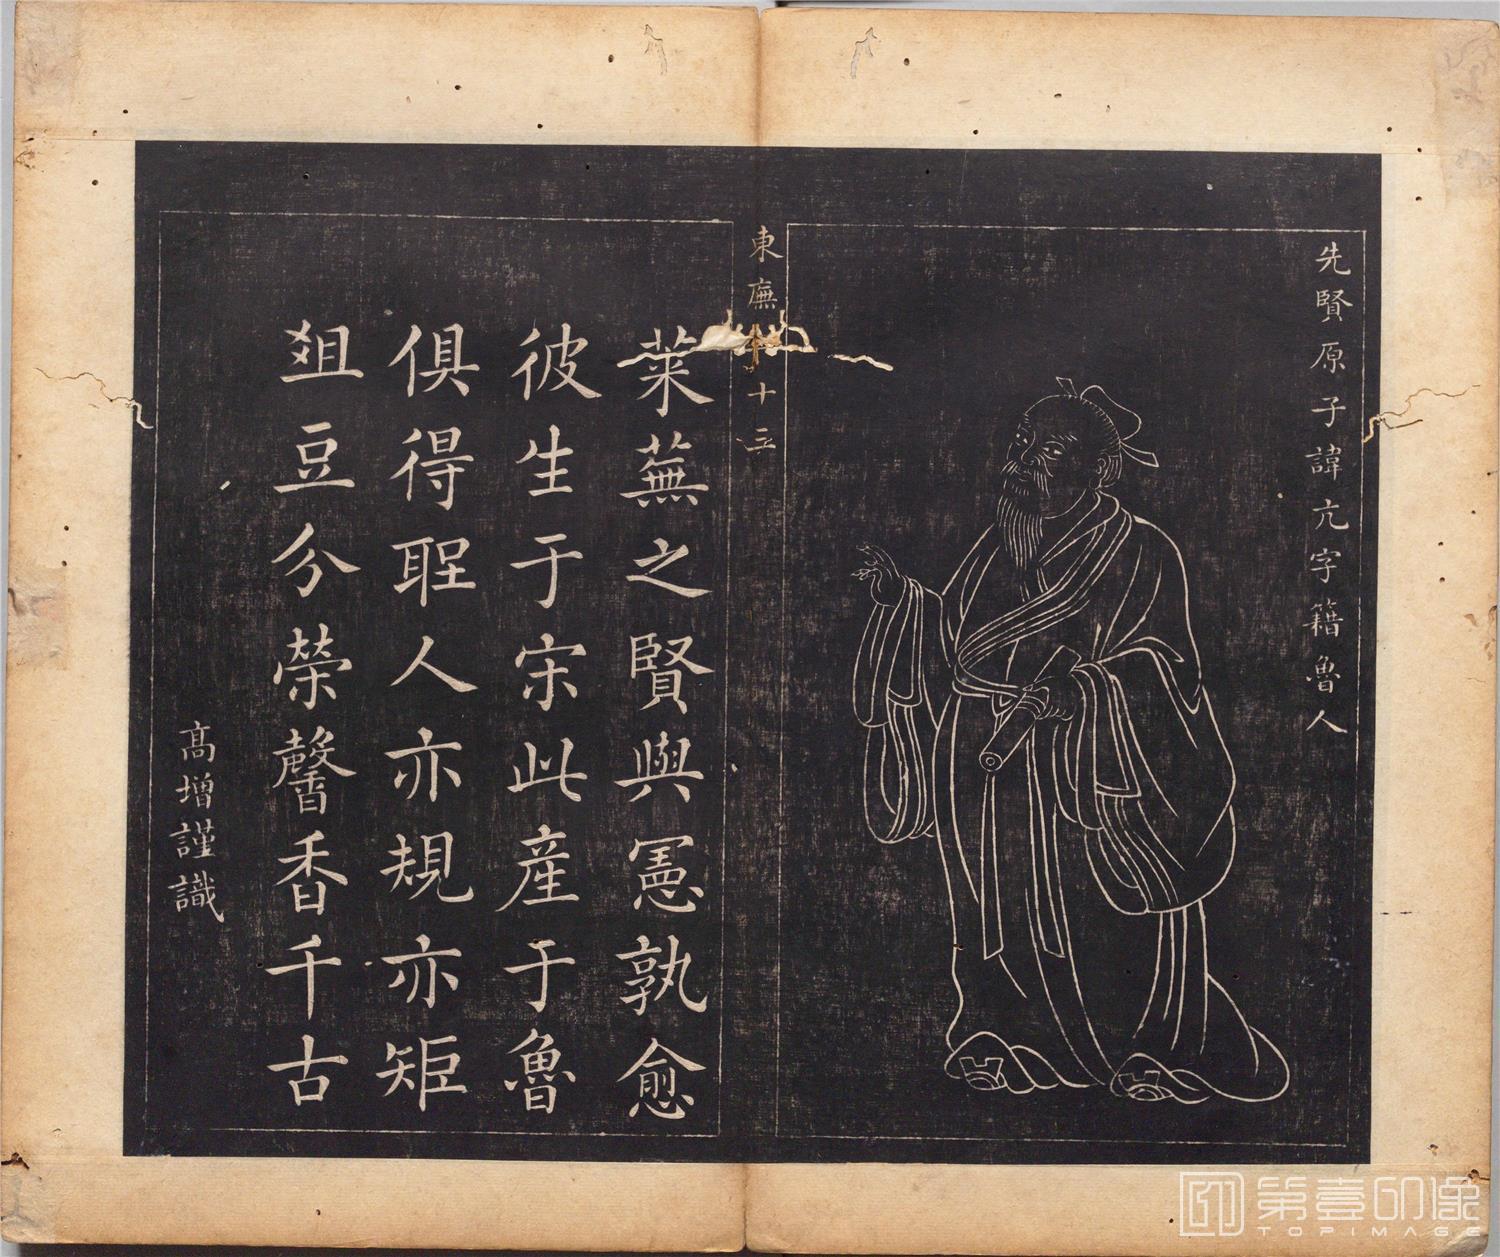 先賢原子諱亢字籍魯人
東廡 十三
萊蕪之賢與憲孰愈
彼生于宋此產于魯
俱得聖人亦規亦矩
俎豆分榮馨香千古
高增謹識
第壹印像
TOPIMAGE